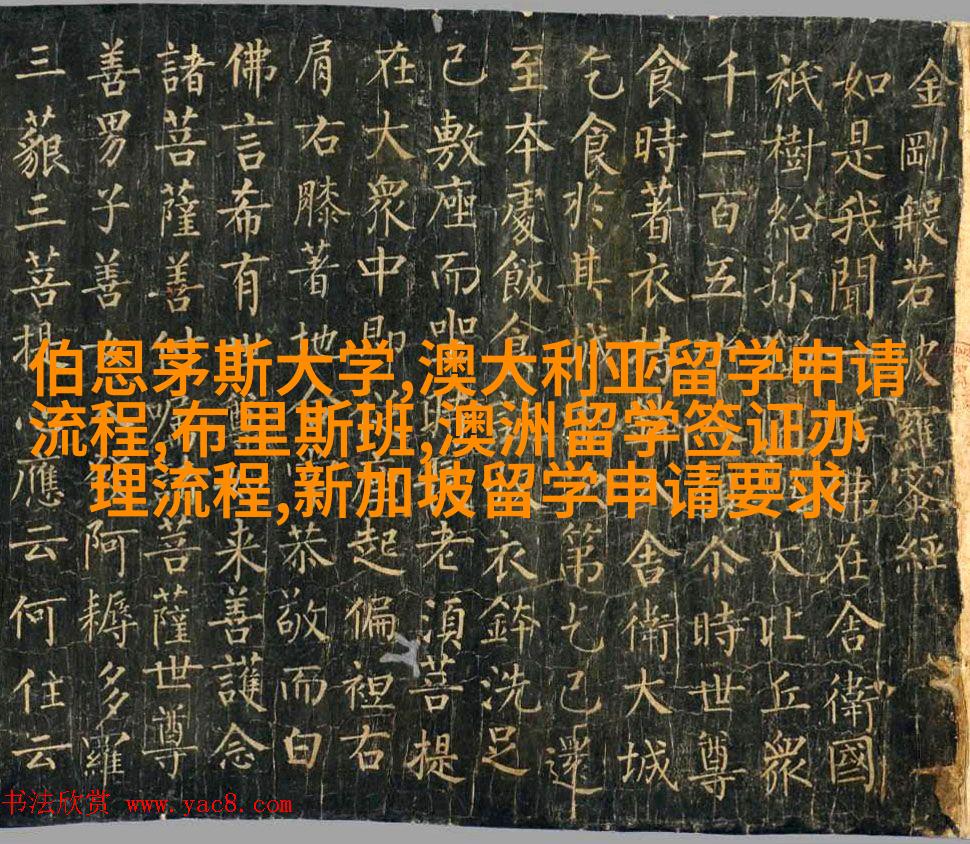 金剛般若波羅蜜經
如是我聞一時佛在舍衛國
祇樹給孤大比丘眾
千二百五尒時世尊
食時著衣持舍衛大城
乞食於其城第乞已還
至本處飯食衣鉢洗足
已敷座而坐老須菩提
在大衆中即起偏袒右
肩右膝著地恭敬而白
佛言希有世来善護念
諸菩薩善付囑菩薩世尊
善男子善女阿耨多羅
三藐三菩提應云何住云
伯恩茅斯大学,澳大利亚留学申请
流程,布里斯班,澳洲留学签证办
理流程,新加坡留学申请要求
书法欣赏 www.yac8.com